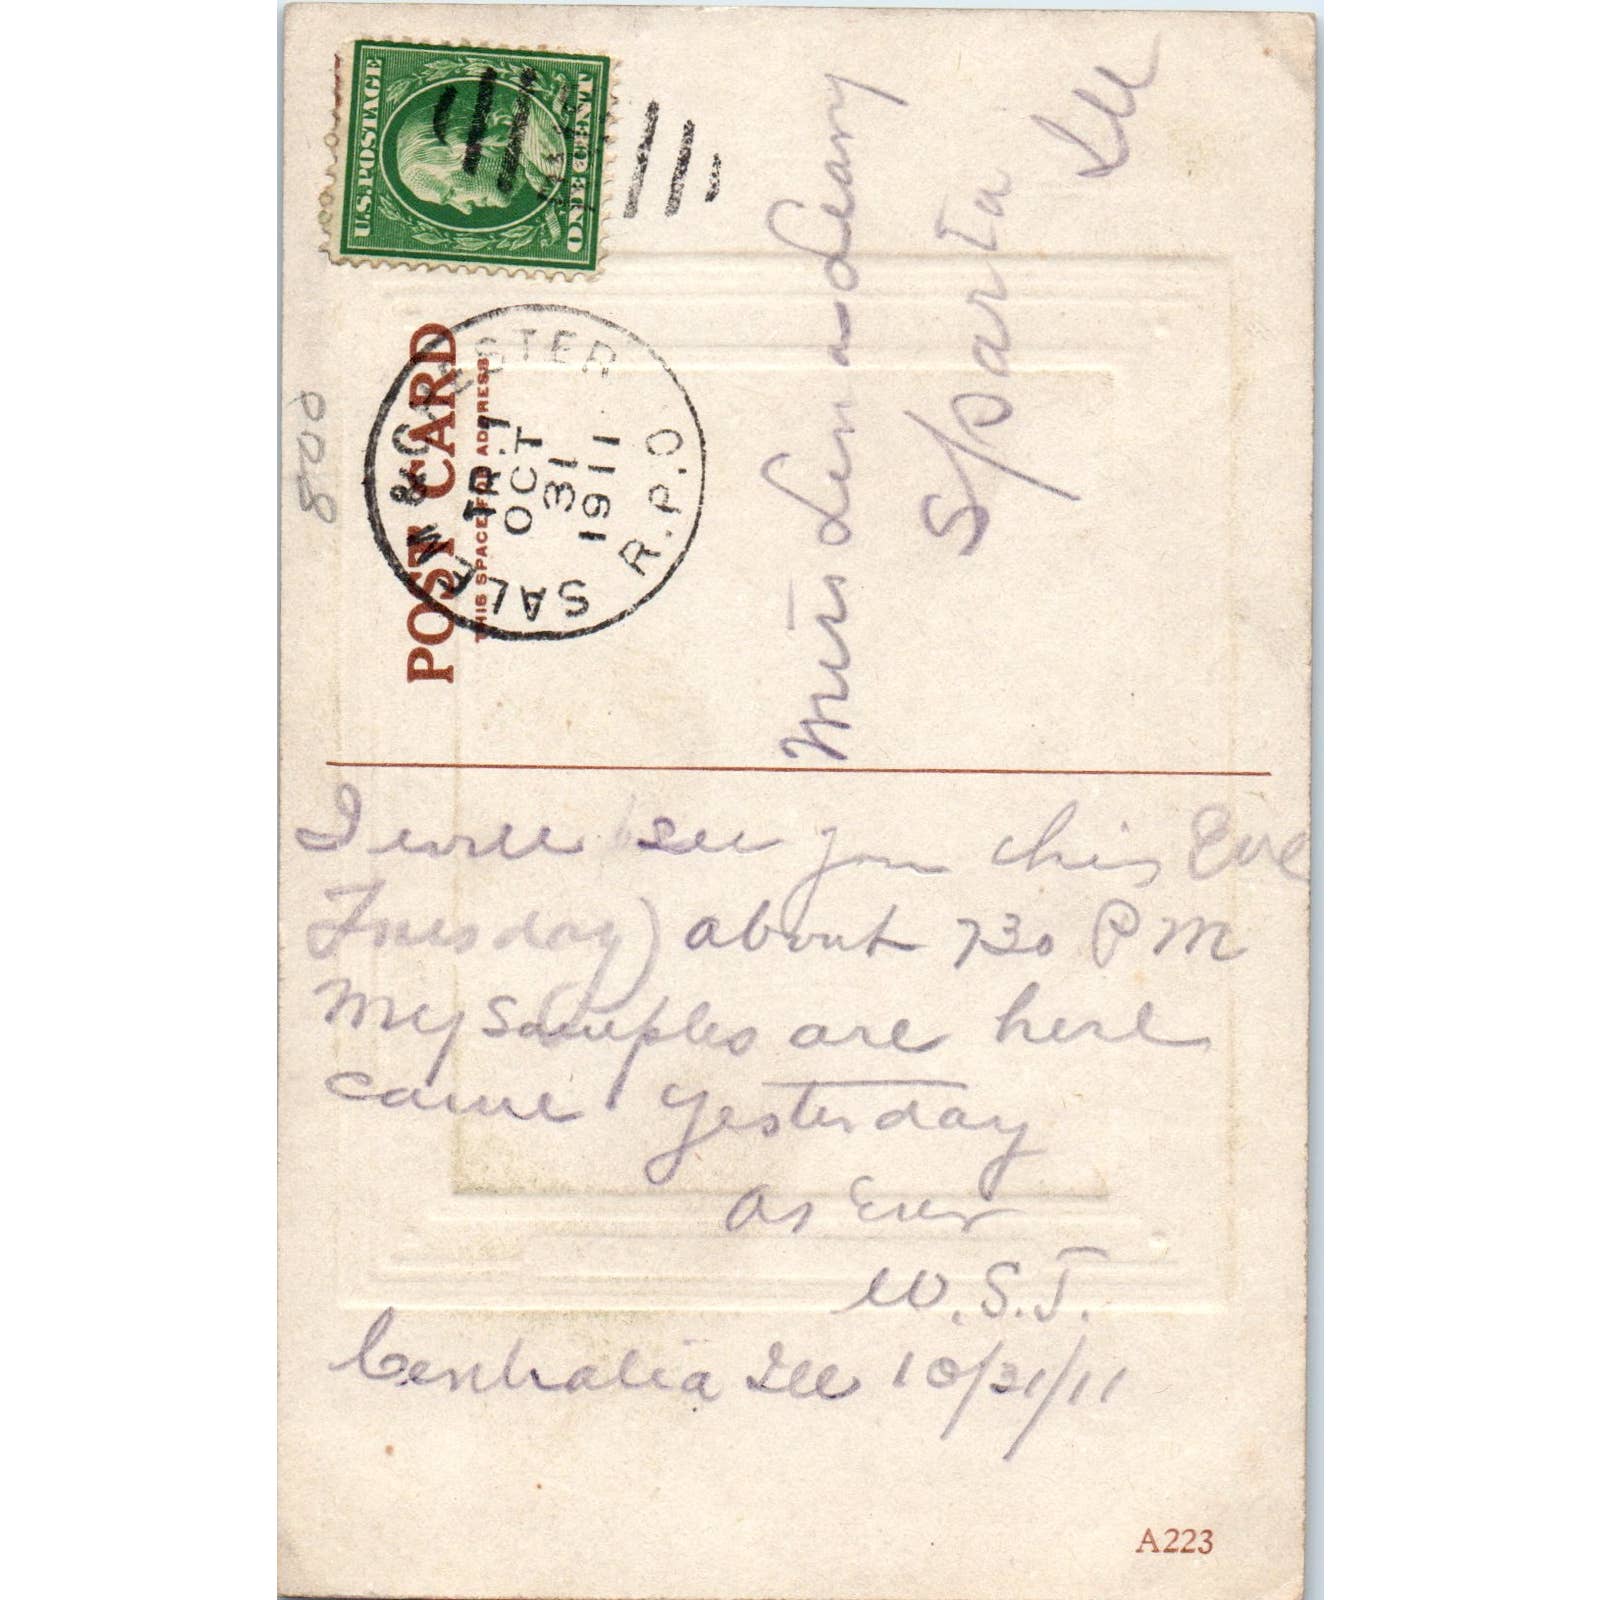 U.S. POSTAGE
ONE CENT
POST CARD
THIS SPACE FOR ADDRESS
SALEM & CHESTER R.P.O.
TR. 7
OCT
31
1911
800
Miss Lena Leany
Sparta
Ill
I will see you this Eve
Tuesday) about 730 P M
My samples are here
came yesterday
As Ever
W.S.T.
Centralia Ill 10/31/11
A223